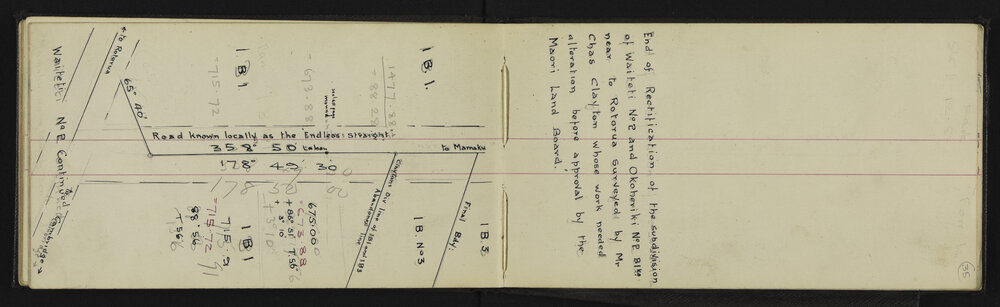 Waiteti Nº 2 Continued
← to Rotorua
65° 40'
to Cambridge →
1 B 1
715.72
693.88
1 B.1.
1477.88
88.28
Road known locally as the Endless straight.
358° 50' taken
to Mamaku
178° 49' 30"
178 50 00
Claytons Div line of 1B1 and 1B3
Abandoned line
Final Bdy:
1 B. Nº 3
1 B.3
675.000
673 88
+ 86° 51' T.56
+ 3' 10"
+ 3' 10"
1 B 1
715.91
715.72
88 56
T 56
End of Rectification of the subdivision
of Waiteti Nº 2 and Okoheriki Nº 2
near to Rotorua Surveyed by Mr
Chas Clayton whose work needed
alteration before approval by the
Maori Land Board.
35